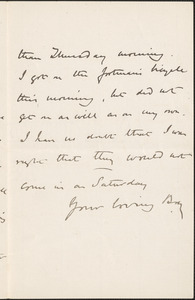 than Thursday morning.
I got on the footman's bicycle
this morning, but did not
get on as well as on my own.
I have no doubt that I was
right that they would not
come in on Saturday
Your loving Boy